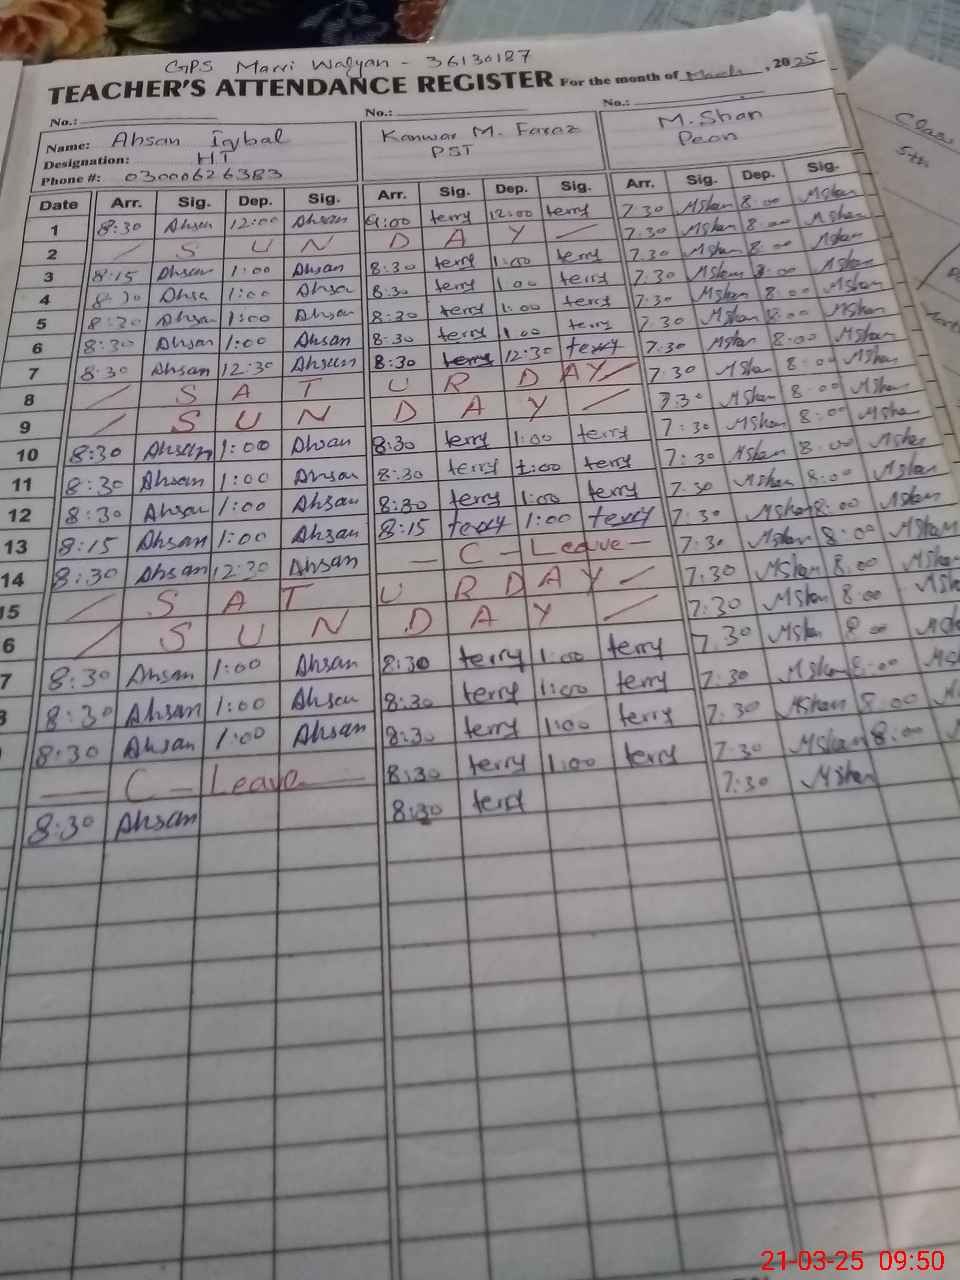 GPS Marri Walyan - 36130187
TEACHER'S ATTENDANCE REGISTER For the month of March, 2025
No.: No.: No.:
Name: Ahsan Iqbal Kanwar M. Faraz M. Shan
Designation: HT PST Peon
Phone #: 03000626383
Date Arr. Sig. Dep. Sig. Arr. Sig. Dep. Sig. Arr. Sig. Dep. Sig.
1 8:30 Ahsan 12:00 Ahsan 9:00 terry 12:00 terry 7:30 MShan 8:00 MShan
2 / S U N D A Y / 7:30 MShan 8:00 MShan
3 8:15 Ahsan 1:00 Ahsan 8:30 terry 1:00 terry 7:30 MShan 8:00 MShan
4 8:30 Ahsa 1:00 Ahsan 8:30 terry 1:00 terry 7:30 MShan 8:00 MShan
5 8:30 Ahsan 1:00 Ahsan 8:30 terry 1:00 terry 7:30 MShan 8:00 MShan
6 8:30 Ahsan 1:00 Ahsan 8:30 terry 1:00 terry 7:30 MShan 8:00 MShan
7 8:30 Ahsan 12:30 Ahsan 8:30 terry 12:30 terry 7:30 MShan 8:00 MShan
8 / S A T U R D A Y / 7:30 MShan 8:00 MShan
9 / S U N D A Y / 7:30 MShan 8:00 MShan
10 8:30 Ahsan 1:00 Ahsan 8:30 terry 1:00 terry 7:30 MShan 8:00 MShan
11 8:30 Ahsan 1:00 Ahsan 8:30 terry 1:00 terry 7:30 MShan 8:00 MShan
12 8:30 Ahsan 1:00 Ahsan 8:30 terry 1:00 terry 7:30 MShan 8:00 MShan
13 8:15 Ahsan 1:00 Ahsan 8:15 terry 1:00 terry 7:30 MShan 8:00 MShan
14 8:30 Ahsan 12:30 Ahsan — C - Leave — 7:30 MShan 8:00 MShan
15 / S A T U R D A Y / 7:30 MShan 8:00 MShan
6 / S U N D A Y / 7:30 MShan 8:00
7 8:30 Ahsan 1:00 Ahsan 8:30 terry 1:00 terry 7:30 MShan 8:00
8:30 Ahsan 1:00 Ahsan 8:30 terry 1:00 terry 7:30 MShan 8:00
8:30 Ahsan 1:00 Ahsan 8:30 terry 1:00 terry 7:30 MShan 8:00
— C - Leave — 8:30 terry 1:00 terry 7:30 MShan
8:30 Ahsan 8:30 terry
Class
5th
21-03-25 09:50